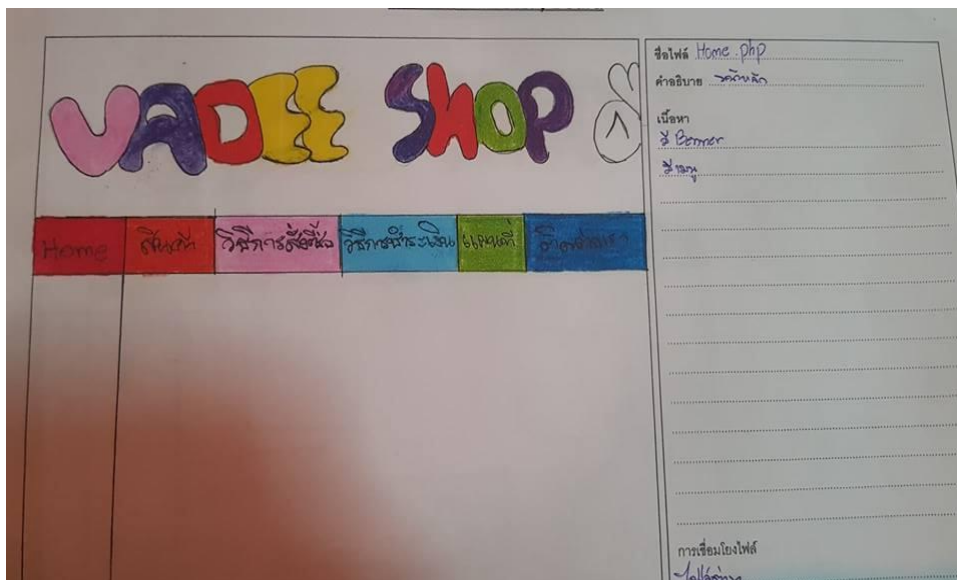 VADEE SHOP
Home สินค้า วิธีการสั่งซื้อ วิธีการชำระเงิน แผนที่ ติดต่อเรา
ชื่อไฟล์ Home.php
คำอธิบาย หน้าหลัก
เนื้อหา
มี Benner
มีเมนู
การเชื่อมโยงไฟล์